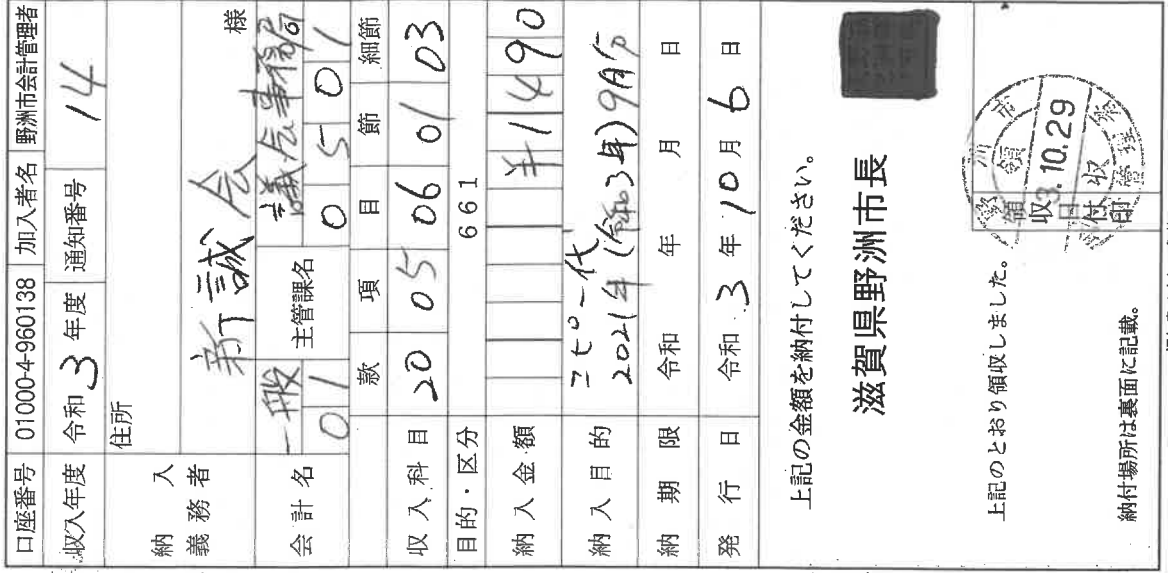 口座番号 01000-4-960138 加入者名 野洲市会計管理者
収入年度 令和 3 年度 通知番号 14
納入義務者 住所
新誠会 様
会計名 一般 主管課名 議会事務局
01 0501
収入科目 款 項 目 節 細節
20 05 06 01 03
目的・区分 661
納入金額 ¥1490
納入目的 コピー代
2021年(令和3年)9月分
納期限 令和 年 月 日
発行日 令和 3 年 10 月 6 日
上記の金額を納付してください。
滋賀県野洲市長
上記のとおり領収しました。
領収日付印
3.10.29
納付場所は裏面に記載。